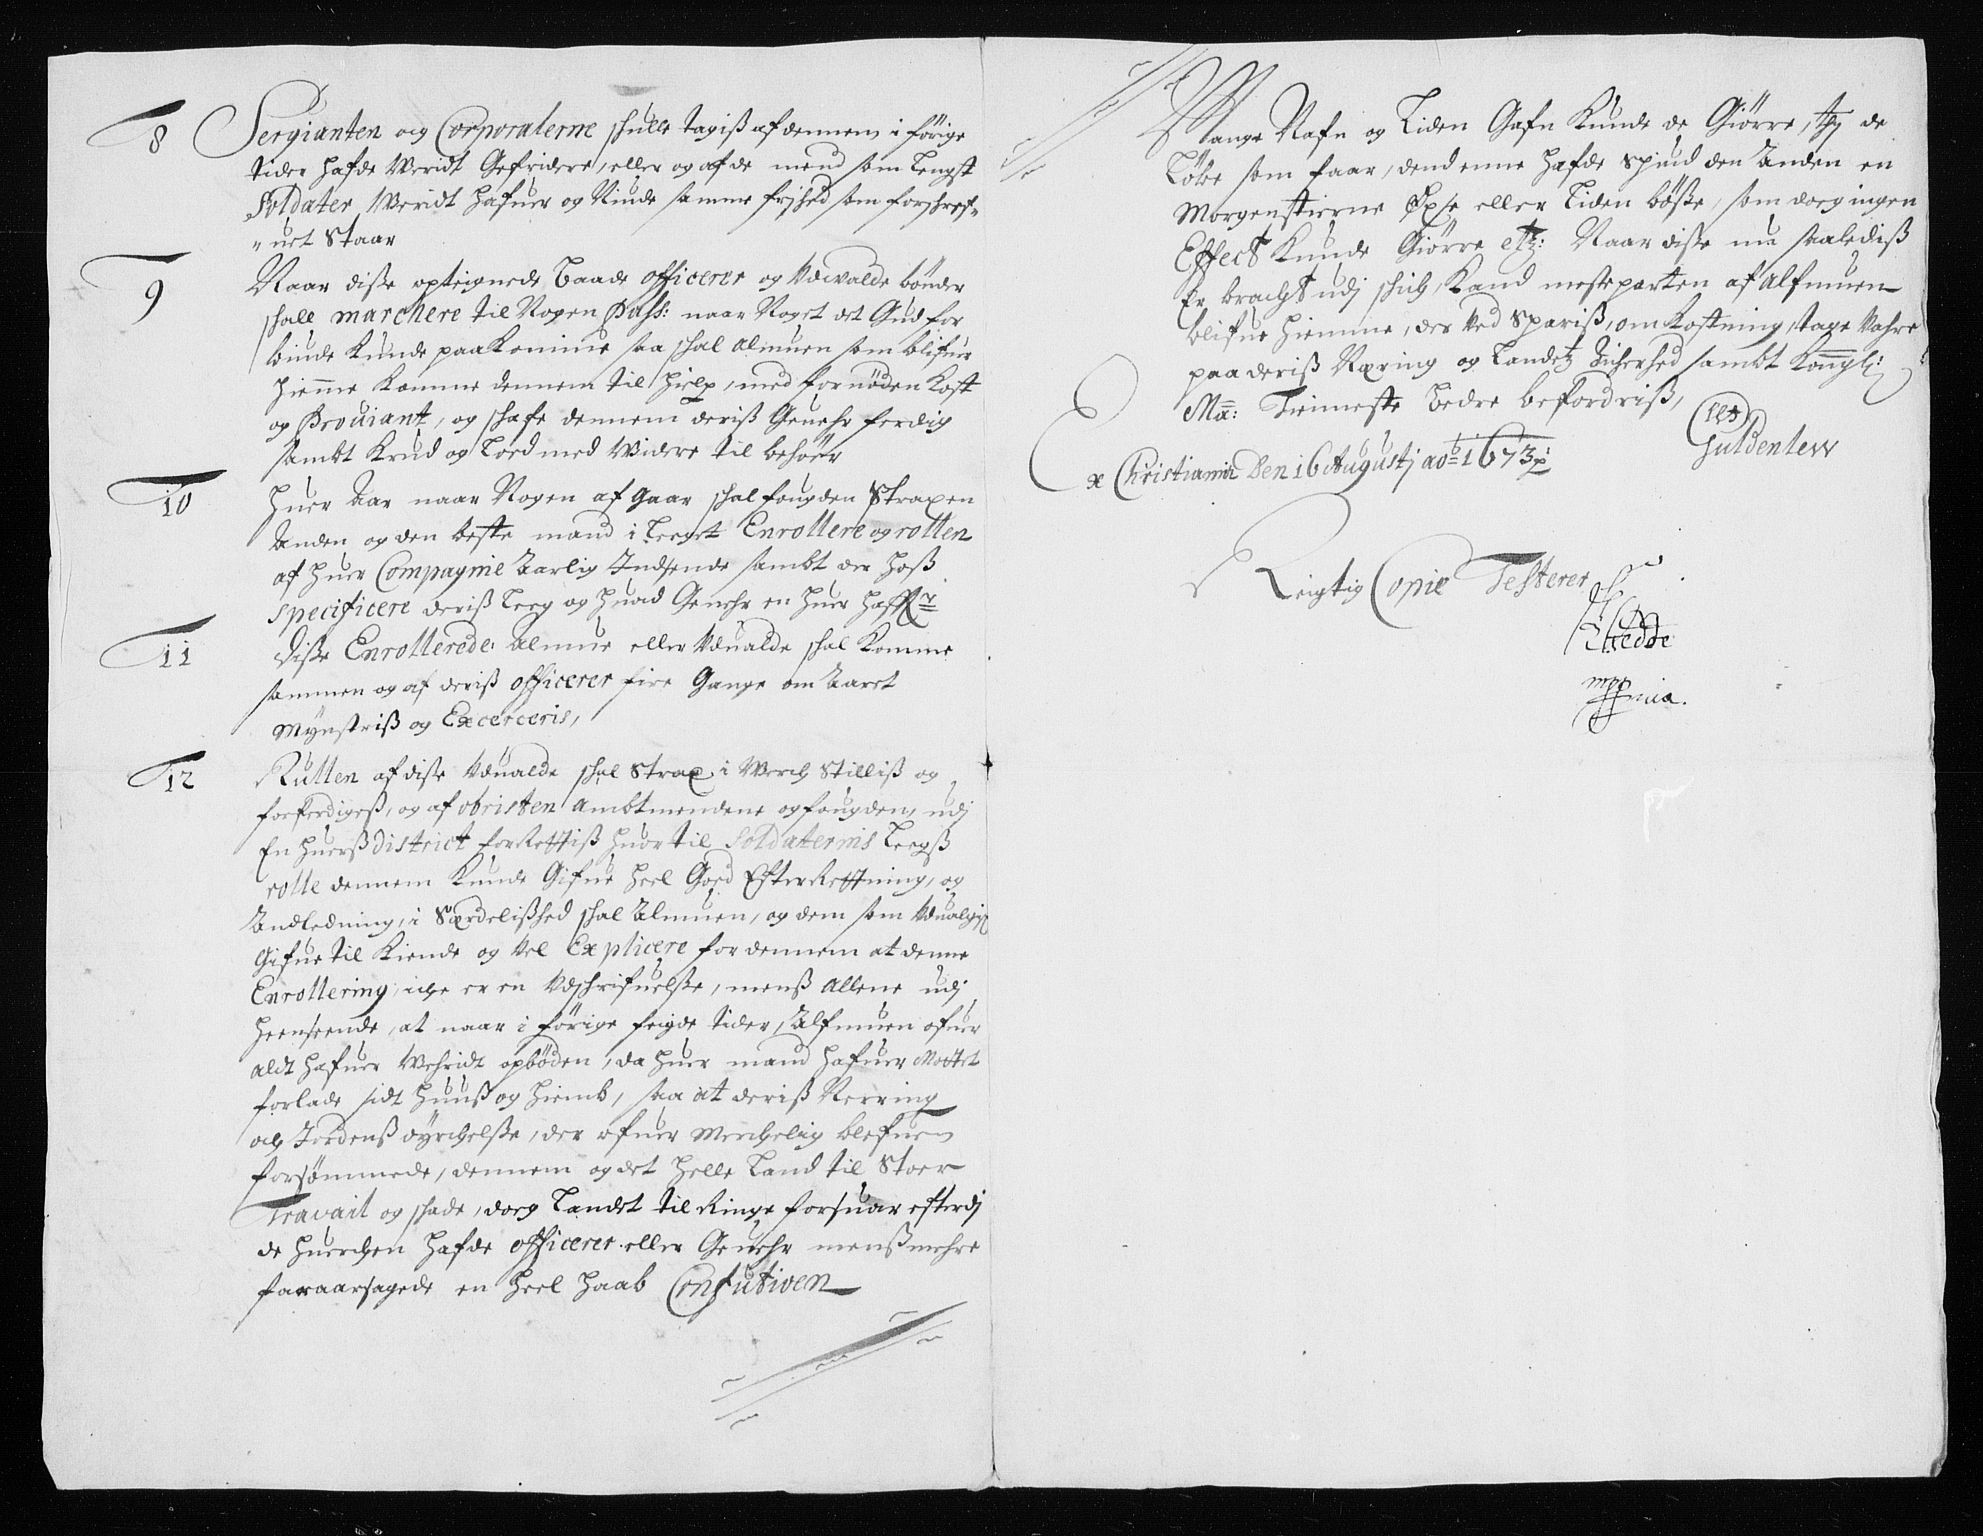 8 Sergianten og Corporalerne schulle tagis af dennem i förige
tider hafde Werridt Gefridere, eller og af de mend som lengst
Soldater Weridt hafuer og Niude samme frjhed som forschref-
" uet Staar
9 Naar disse optegnede baade officerer og Vdwalde bönder
schall marchere til Nogen Pass: naar Noget det Gud for
biude Kunde paakomme saa schal almuen som blifuer
hiemme komme dennem til hielp, med fornöden Kost
og Prouiant, og schafe dennem deriss Geuehr ferdig
sambt Krud og Loed med Widere til behöer
10 huer Aar naar Nogen af gaar schal fougden Straxen
Anden og den beste mand i Leeget Enrollere og rollen
af huer Compagnie Aarlig Indsende sambt der hoss
specificere deriss Leeg og huad Geuehr en huer haffr
11 Disse Enrollerede: almue eller Vdualde schal Komme
sammen og af deriss officerer fire Gange om Aaret
Mynstriss og Excerceris,
12 Rullen af disse Vdualde schal Strax i Werch Stilliss og
forferdigess, og af obristen ambtmendene og fougden, udj
En huerss district forRettiss huor til Soldaternis Leegss
rolle dennem Kunde Gifue heel Goed EfterRettning, og
Andledning, i Særdelisshed schal Almuen, og dem som Vdualgis
Gifue til Kiende og Vel Explicere for dennem at denne
Enrollering, iche er en Vdschrifuelsse, menss allene udj
heenseende, at naar i förige feigde tider, Alfmuen ofuer
aldt hafuer Wehridt opböden, da huer mand hafuer Mottet
forlade sidt Huuss og Hiemb, saa at deriss Nerring
och Jordenss dyrchelsse, der ofuer Merchelig blefuen
forsömmede, dennem og det helle Land til Stoer
Travail og schade, doeg Landet til Ringe forsuar efterdj
de huerchen hafde officerer eller Geuehr menss mehre
foraarsagede en heel haab Confutioen
Mange Nafn og Liden Gafn Kunde de Giörre, thj de
Löbe som faar, dend enne hafde Spiud den Anden en
Morgenstierne Öxse eller Liden bösse, som doeg ingen
Effect Kunde Giörre etz: Naar disse nu saalediss
Er bracht udj schich, Kand mesteparten af Alfmuen
blifue hiemme, der Ved Spariss, omkostning, tage Vahre
paa deriss Næring og Landetz Sicherhed sambt Konngli:
Ma: Tienneste bedre befordriss,
Ex Christiania Den 16 Augustj ao: 1673
Guldenlew
Reigtig Copie Testerer
mpp